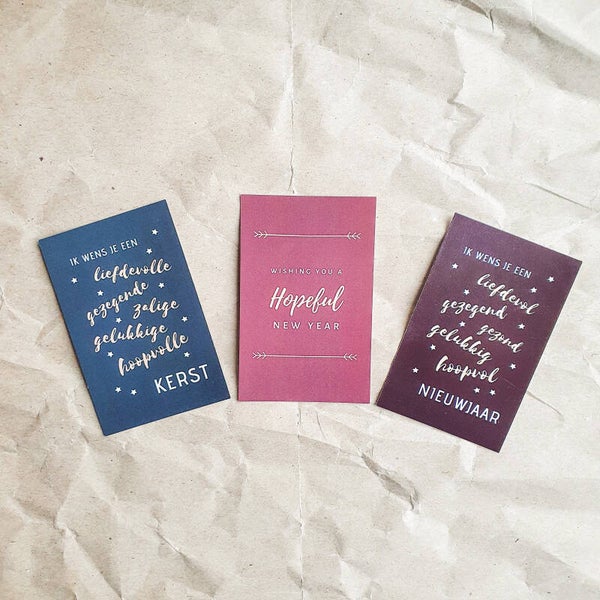 IK WENS JE EEN
liefdevolle
gezegende
zalige
gelukkige
hoopvolle
KERST
WISHING YOU A
Hopeful
NEW YEAR
IK WENS JE EEN
liefdevol
gezegend
gezond
gelukkig
hoopvol
NIEUWJAAR